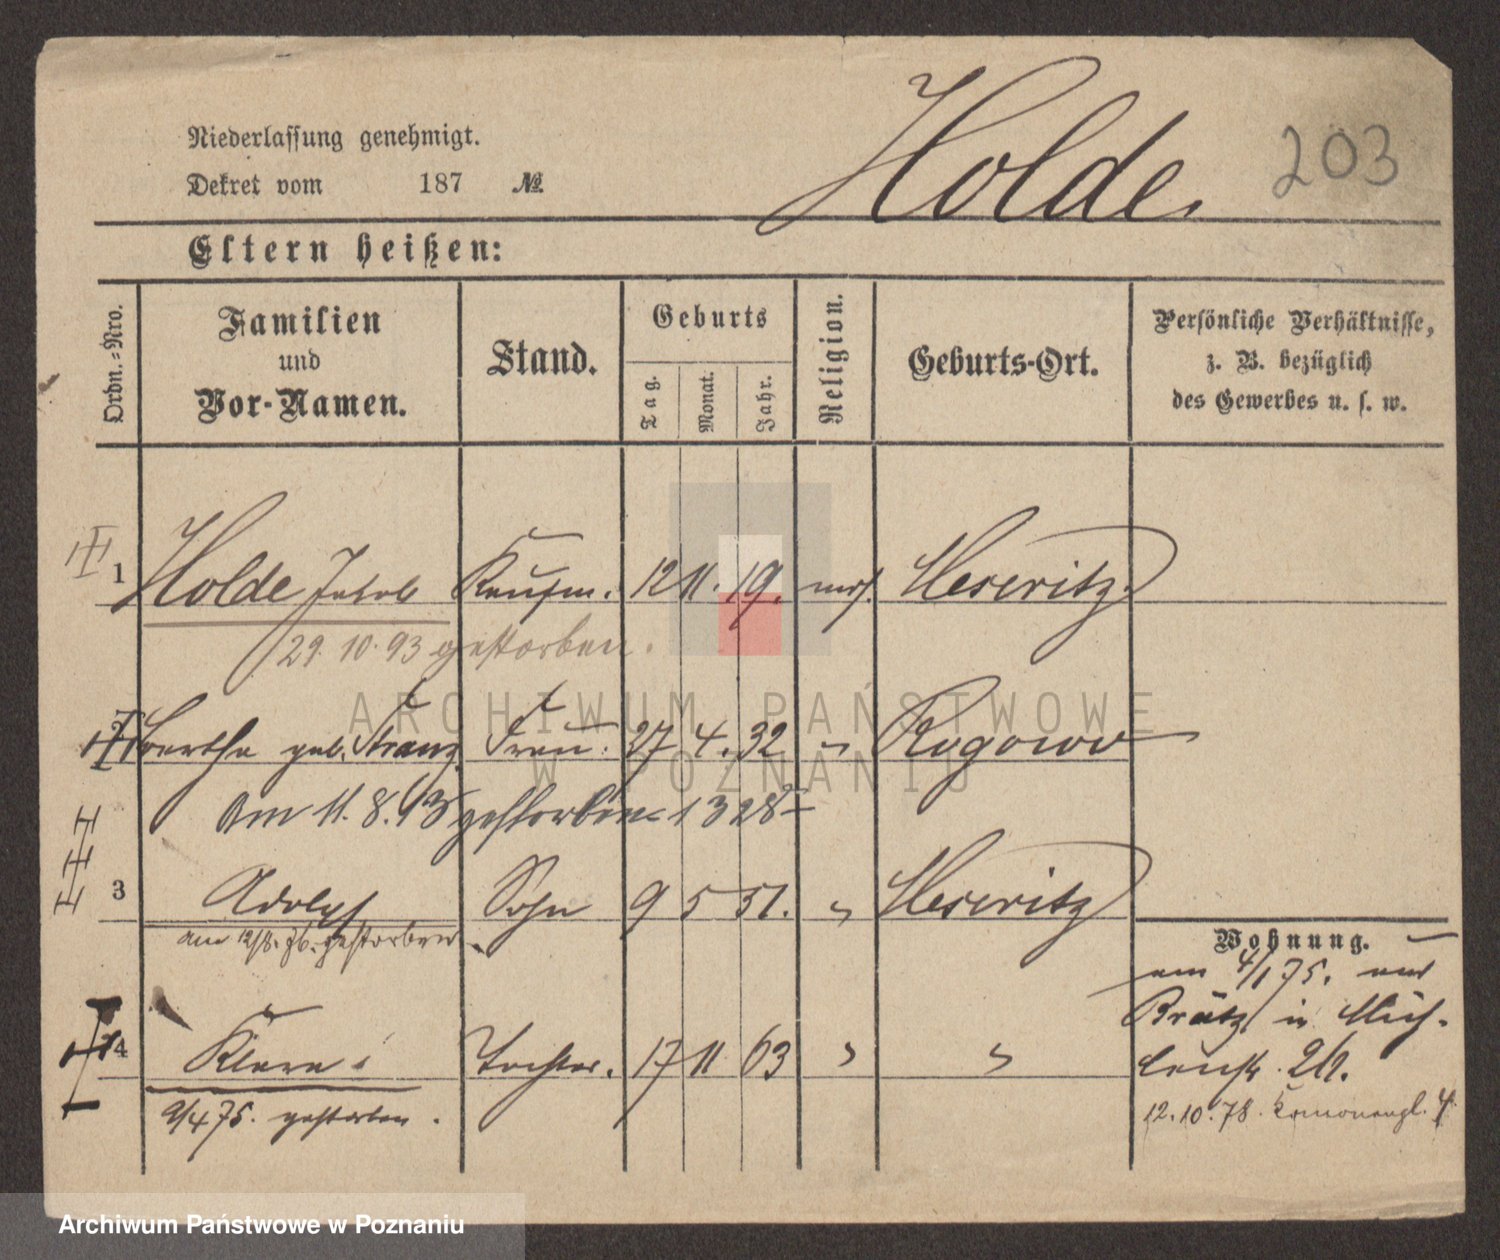 Holde.
203
Niederlassung genehmigt.
Dekret vom 187 №
Eltern heißen:
Ordn.-Nro.
Familien und Vor-Namen.
Stand.
Geburts
Tag.
Monat.
Jahr.
Religion.
Geburts-Ort.
Persönliche Verhältnisse,
z. B. bezüglich
des Gewerbes u. s. w.
1 Holde Jakob Kaufm. 12 11. 19. mos. Meseritz.
29. 10. 93 gestorben.
2 Bertha geb. Stranz Frau. 27 4. 32 " Rogowo
Am 11. 8. 13 gestorben 1328
3 Adolph Sohn 9 5 51. " Meseritz
am 12/8. 76. gestorben
4 Klara Tochter. 17 11 63 " "
9/4 75. gestorben.
Wohnung.
am 4/1 75. aus
Brätz in Müh-
lenstr. 29.
12. 10. 78.
ARCHIWUM PAŃSTWOWE
W POZNANIU
Archiwum Państwowe w Poznaniu